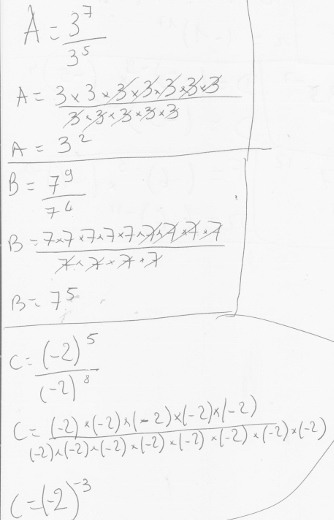 A = 3^7 / 3^5
A = 3 × 3 × 3 × 3 × 3 × 3 × 3 / 3 × 3 × 3 × 3 × 3
A = 3^2
B = 7^9 / 7^4
B = 7 × 7 × 7 × 7 × 7 × 7 × 7 × 7 × 7 / 7 × 7 × 7 × 7
B = 7^5
C = (-2)^5 / (-2)^8
C = (-2) × (-2) × (-2) × (-2) × (-2) / (-2) × (-2) × (-2) × (-2) × (-2) × (-2) × (-2) × (-2)
C = (-2)^-3